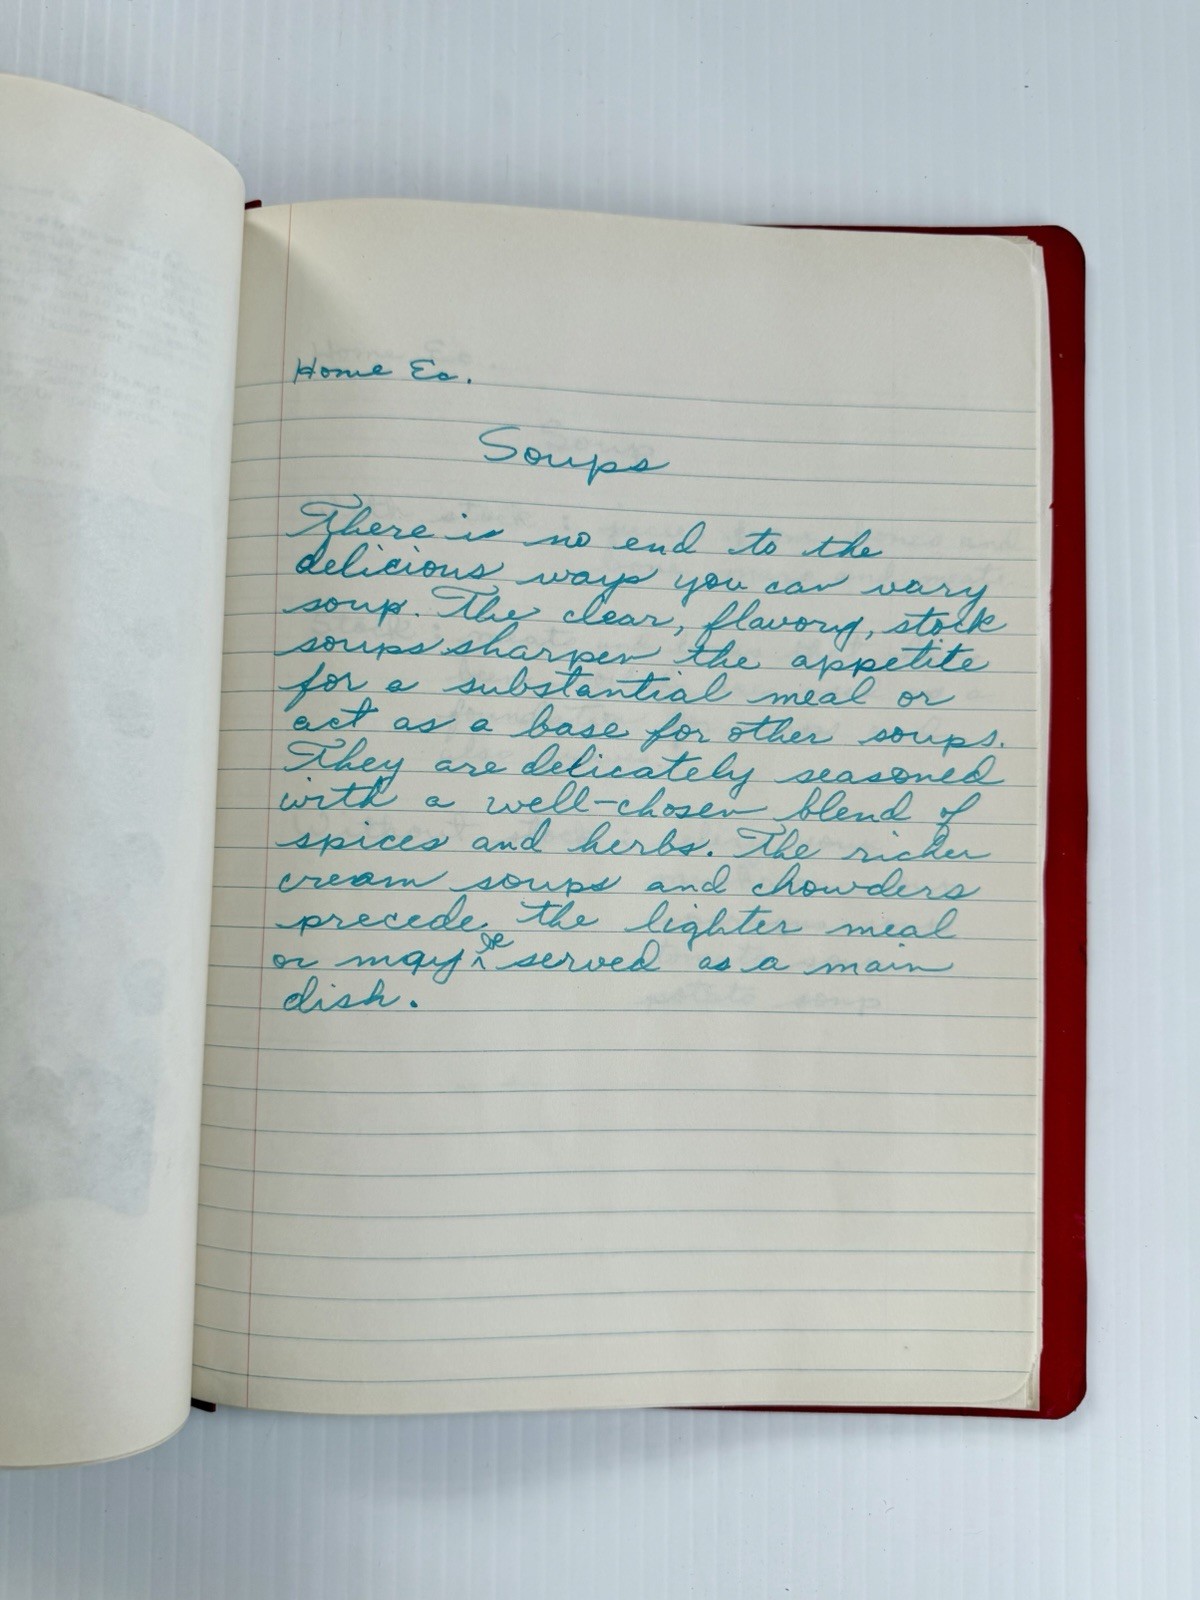 Home Ec.
Soups
There is no end to the
delicious ways you can vary
soup. The clear, flavory, stock
soups sharpen the appetite
for a substantial meal or
act as a base for other soups.
They are delicately seasoned
with a well-chosen blend of
spices and herbs. The richer
cream soups and chowders
precede the lighter meal
or may ^be served as a main
dish.